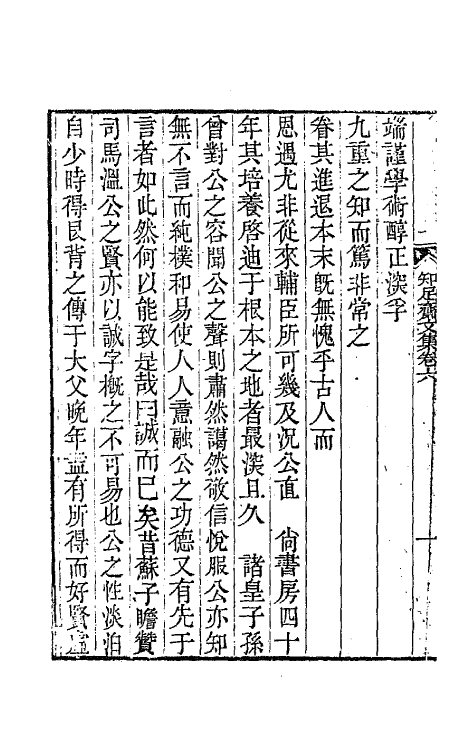 知足齋文集卷六
一
端謹學術醇正深孚
九重之知而篤非常之
眷其進退本末旣無愧乎古人而
恩遇尤非從來輔臣所可幾及況公直　尙書房四十
年其培養啓迪于根本之地者最深且久　諸皇子孫
曾對公之容聞公之聲則肅然藹然敬信悅服公亦知
無不言而純樸和易使人人意融公之功德又有先于
言者如此然何以能致是哉曰誠而已矣昔蘇子瞻贊
司馬溫公之賢亦以誠字槪之不可易也公之性淡泊
自少時得艮背之傳于大父晚年益有所得而好賢